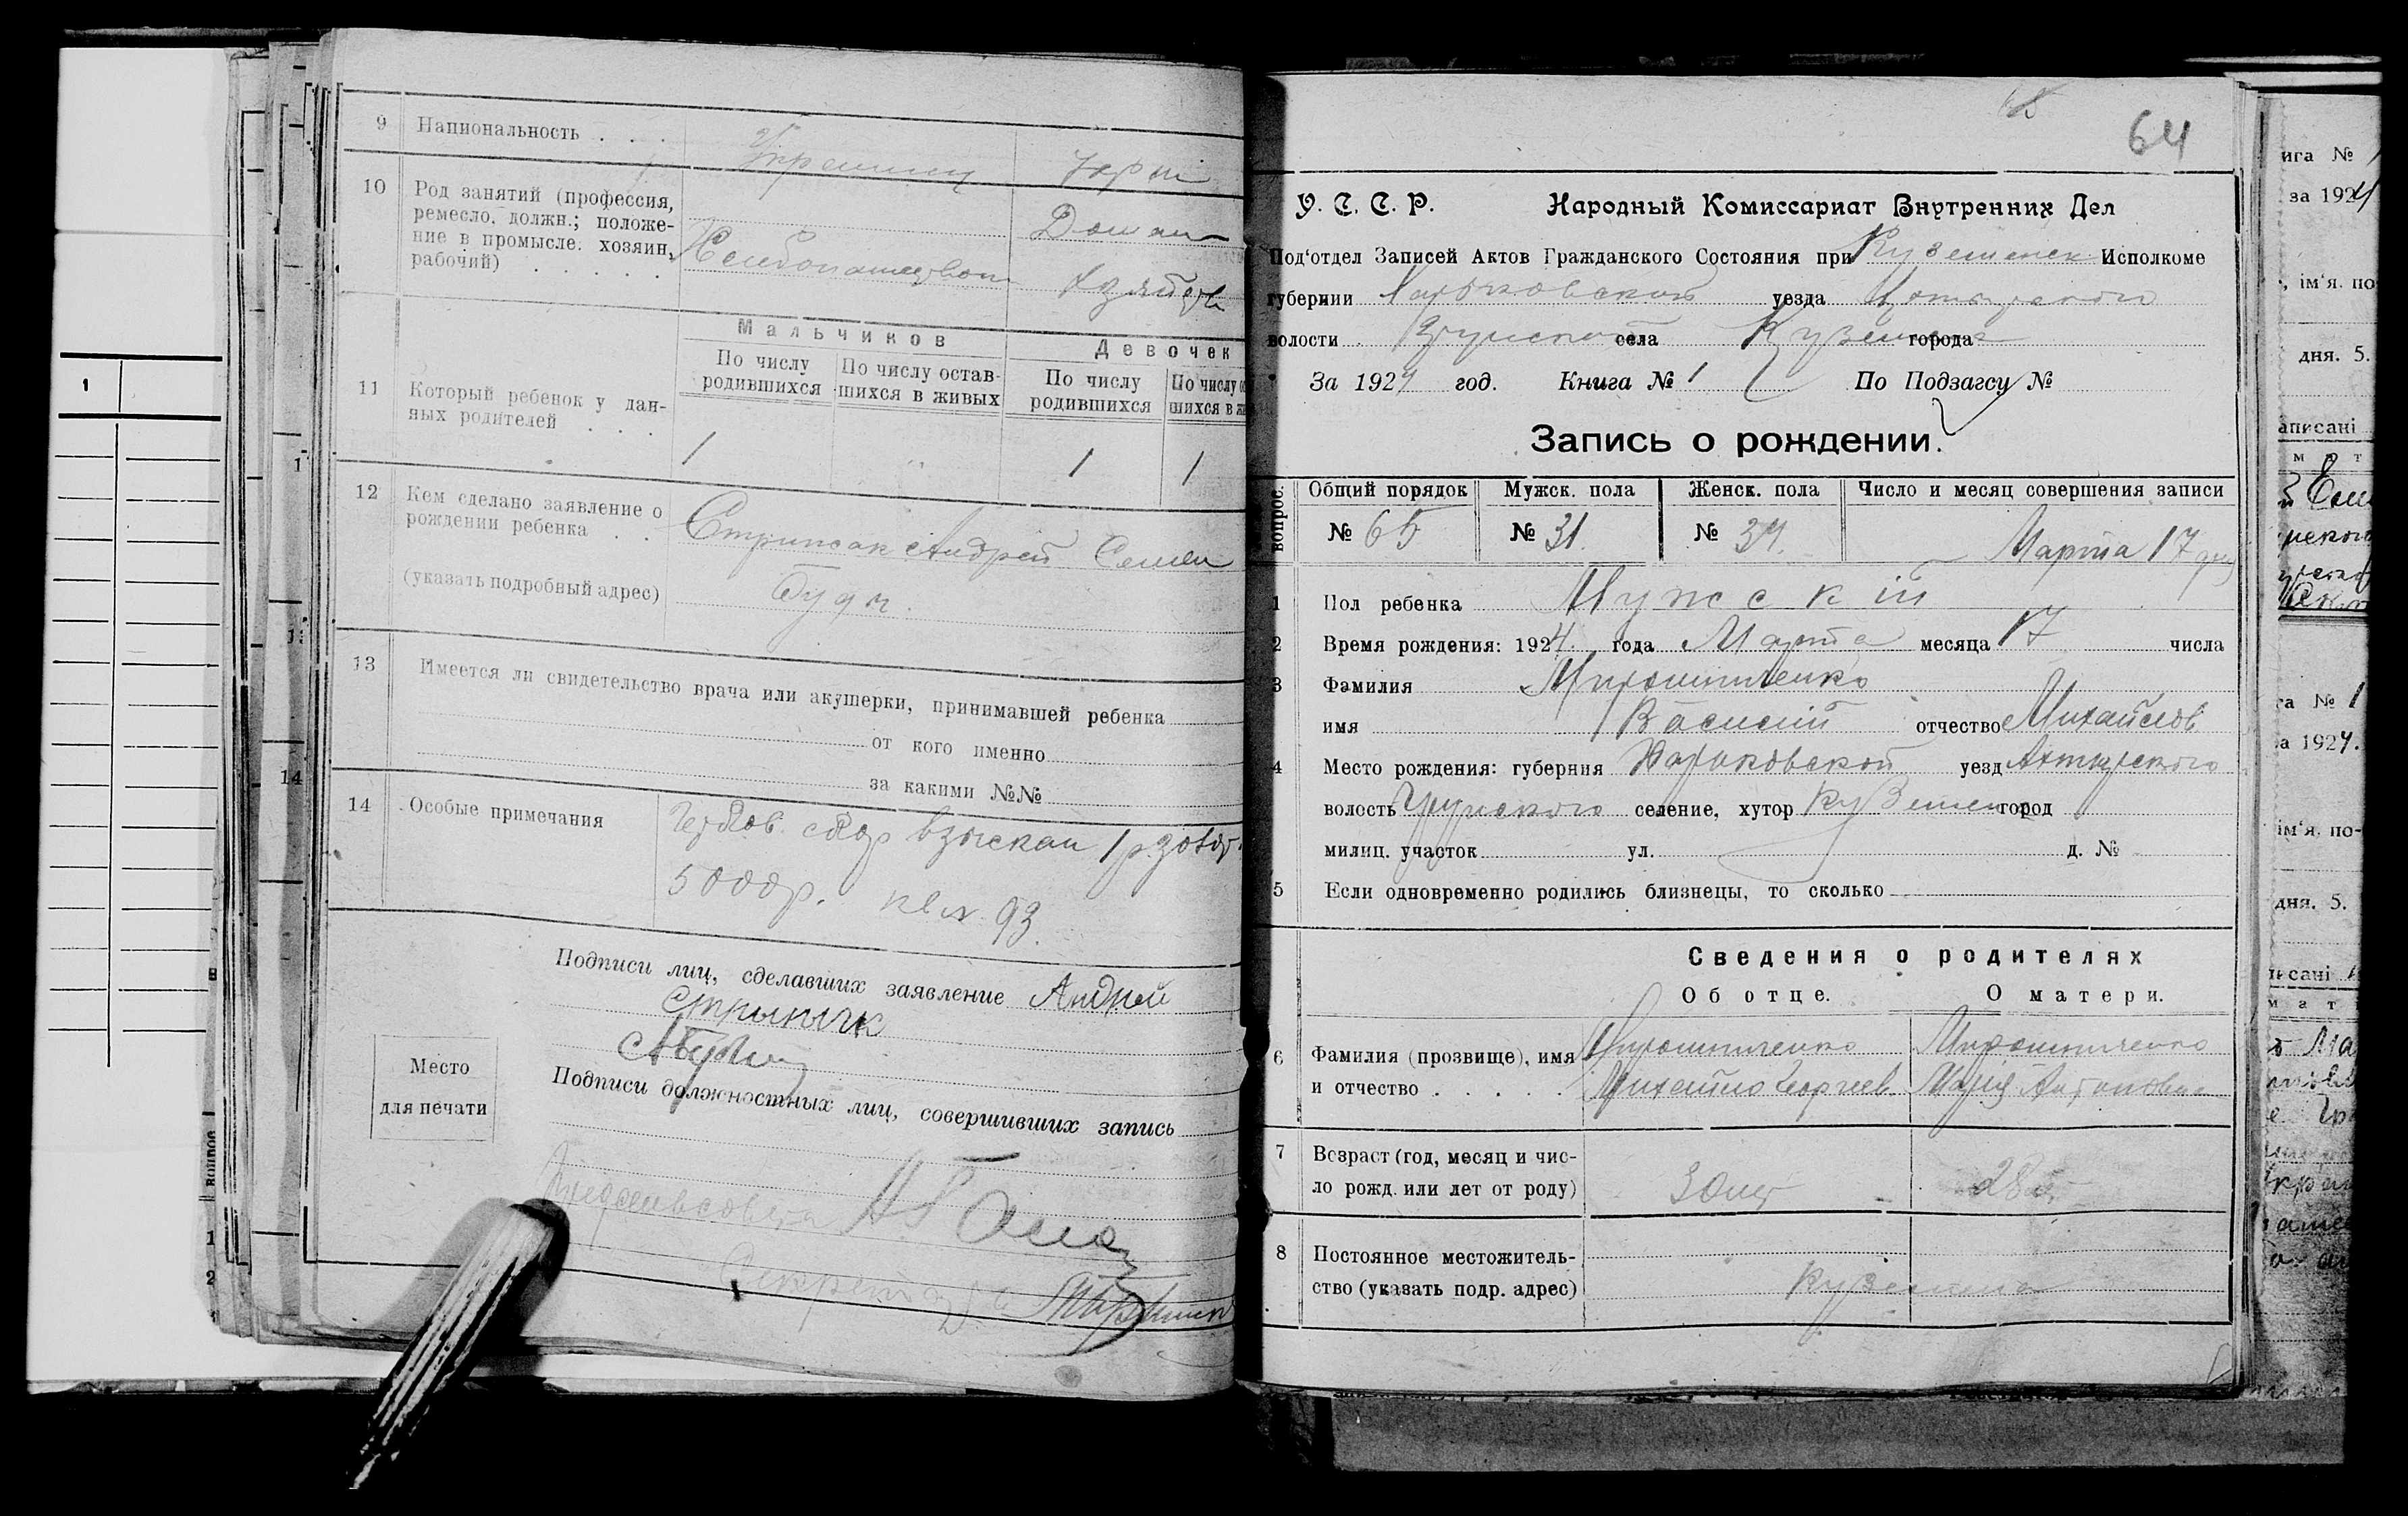 9 Национальность . . .
Украинец
Укр
10 Род занятий (профессия,
ремесло, должн.; положе-
ние в промысле: хозяин,
рабочий) . . . . .
Хлебопашество
Домаш
хозяйств
Мальчиков
Девочек
По числу
родившихся
По числу остав-
шихся в живых
По числу
родившихся
По числу
шихся в
11 Который ребенок у дан-
ных родителей . . .
1
1
1
12 Кем сделано заявление о
рождении ребенка . .
Стрижак Андрей Семен
(указать подробный адрес)
13 Имеется ли свидетельство врача или акушерки, принимавшей ребенка
от кого именно
за какими №№
14 Особые примечания
Гербов. сбор взыскан 1 р.
5000р. кв. 93.
Подписи лиц, сделавших заявление Андрей
Место
для печати
Подписи должностных лиц, совершивших запись
Секретарь
64
У. С. С. Р. Народный Комиссариат Внутренних Дел
Под'отдел Записей Актов Гражданского Состояния при Куземенск Исполкоме
губернии Харьковской уезда Ахтырского
волости Грунской села Куземена города
За 1924 год. Книга № 1 По Подзагсу №
Запись о рождении.
вопрос.
Общий порядок Мужск. пола Женск. пола Число и месяц совершения записи
№ 65 № 31. № 34. Марта 17
1 Пол ребенка Мужскій
2 Время рождения: 1924 года Марта месяца 17 числа
3 Фамилия Мирошниченко
имя Василий отчество Михайлов
4 Место рождения: губерния Харьковской уезд Ахтырского
волость Грунского селение, хутор Куземен город
милиц. участок ул. д. №
5 Если одновременно родились близнецы, то сколько
Сведения о родителях
Об отце. О матери.
6 Фамилия (прозвище), имя Мирошниченко Мирошниченко
и отчество . . . . . Михайло Георгиев Мария Антоновна
7 Возраст (год, месяц и чис-
ло рожд. или лет от роду)
30 лет 28 л.
8 Постоянное местожитель-
ство (указать подр. адрес)
Куземена
ига №
за 1924
ім'я. по
дня. 5.
аписані
№ 1
а 1924.
ім'я. по-
дня. 5.
1
14
1
2